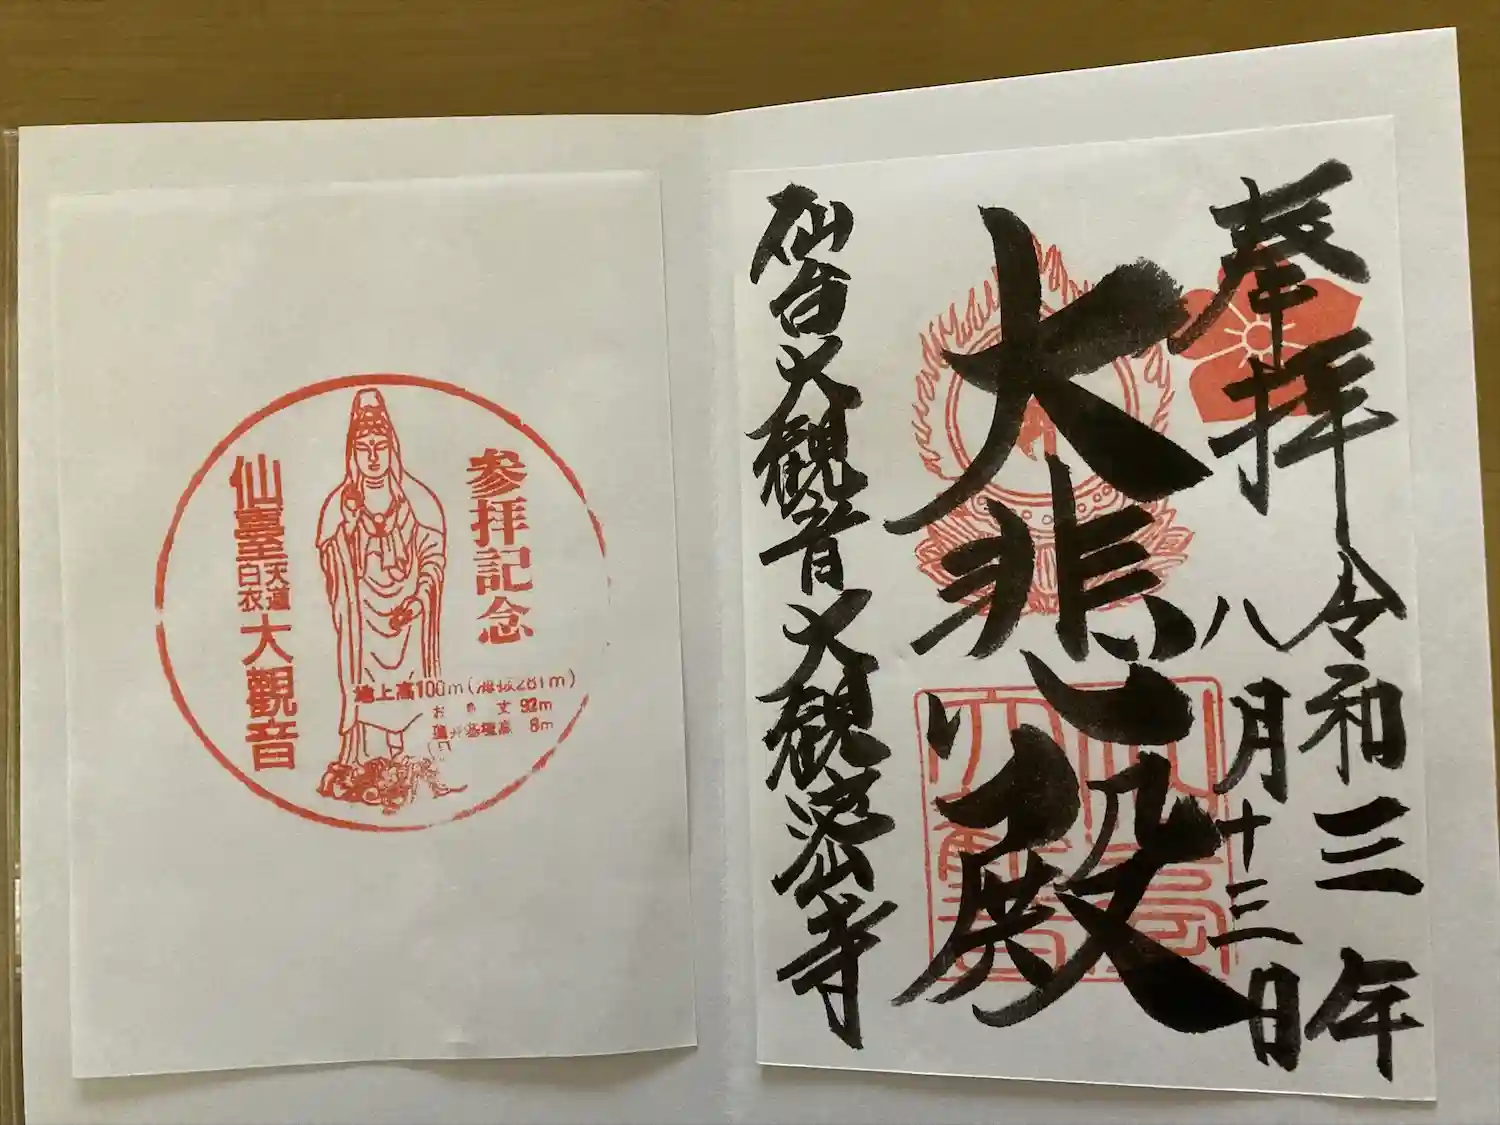 参拝記念
仙臺天道白衣大觀音
地上高100m(海抜281m)
おみ丈 92m
8m
奉拝
令和三年
八月十三日
大悲殿
仙台大観音大観密寺